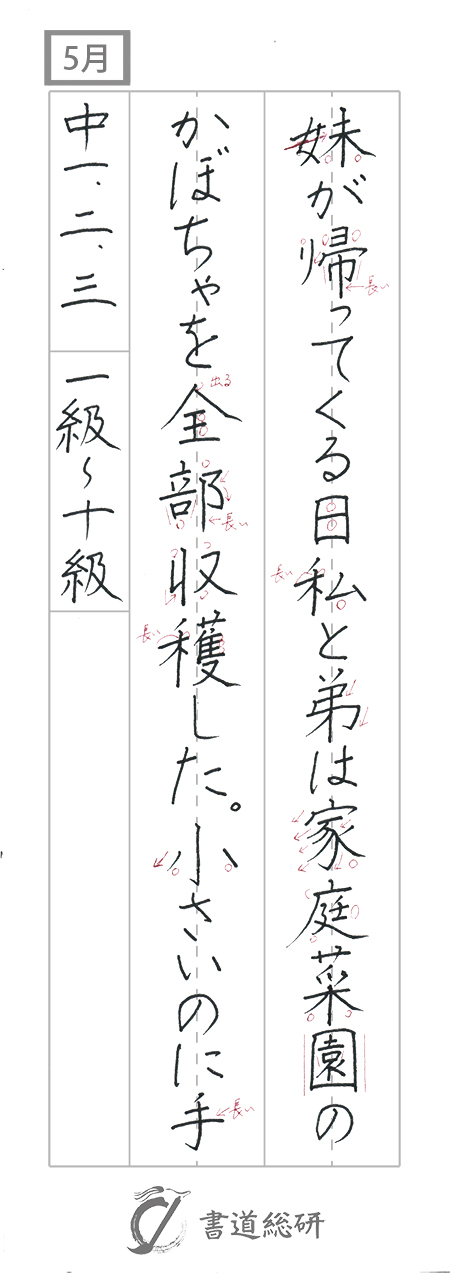 5月
妹が帰ってくる日私と弟は家庭菜園の
かぼちゃを全部収穫した。小さいのに手
中一、二、三 一級～十級
長い
出る
長い
長い
長い
長い
書道総研